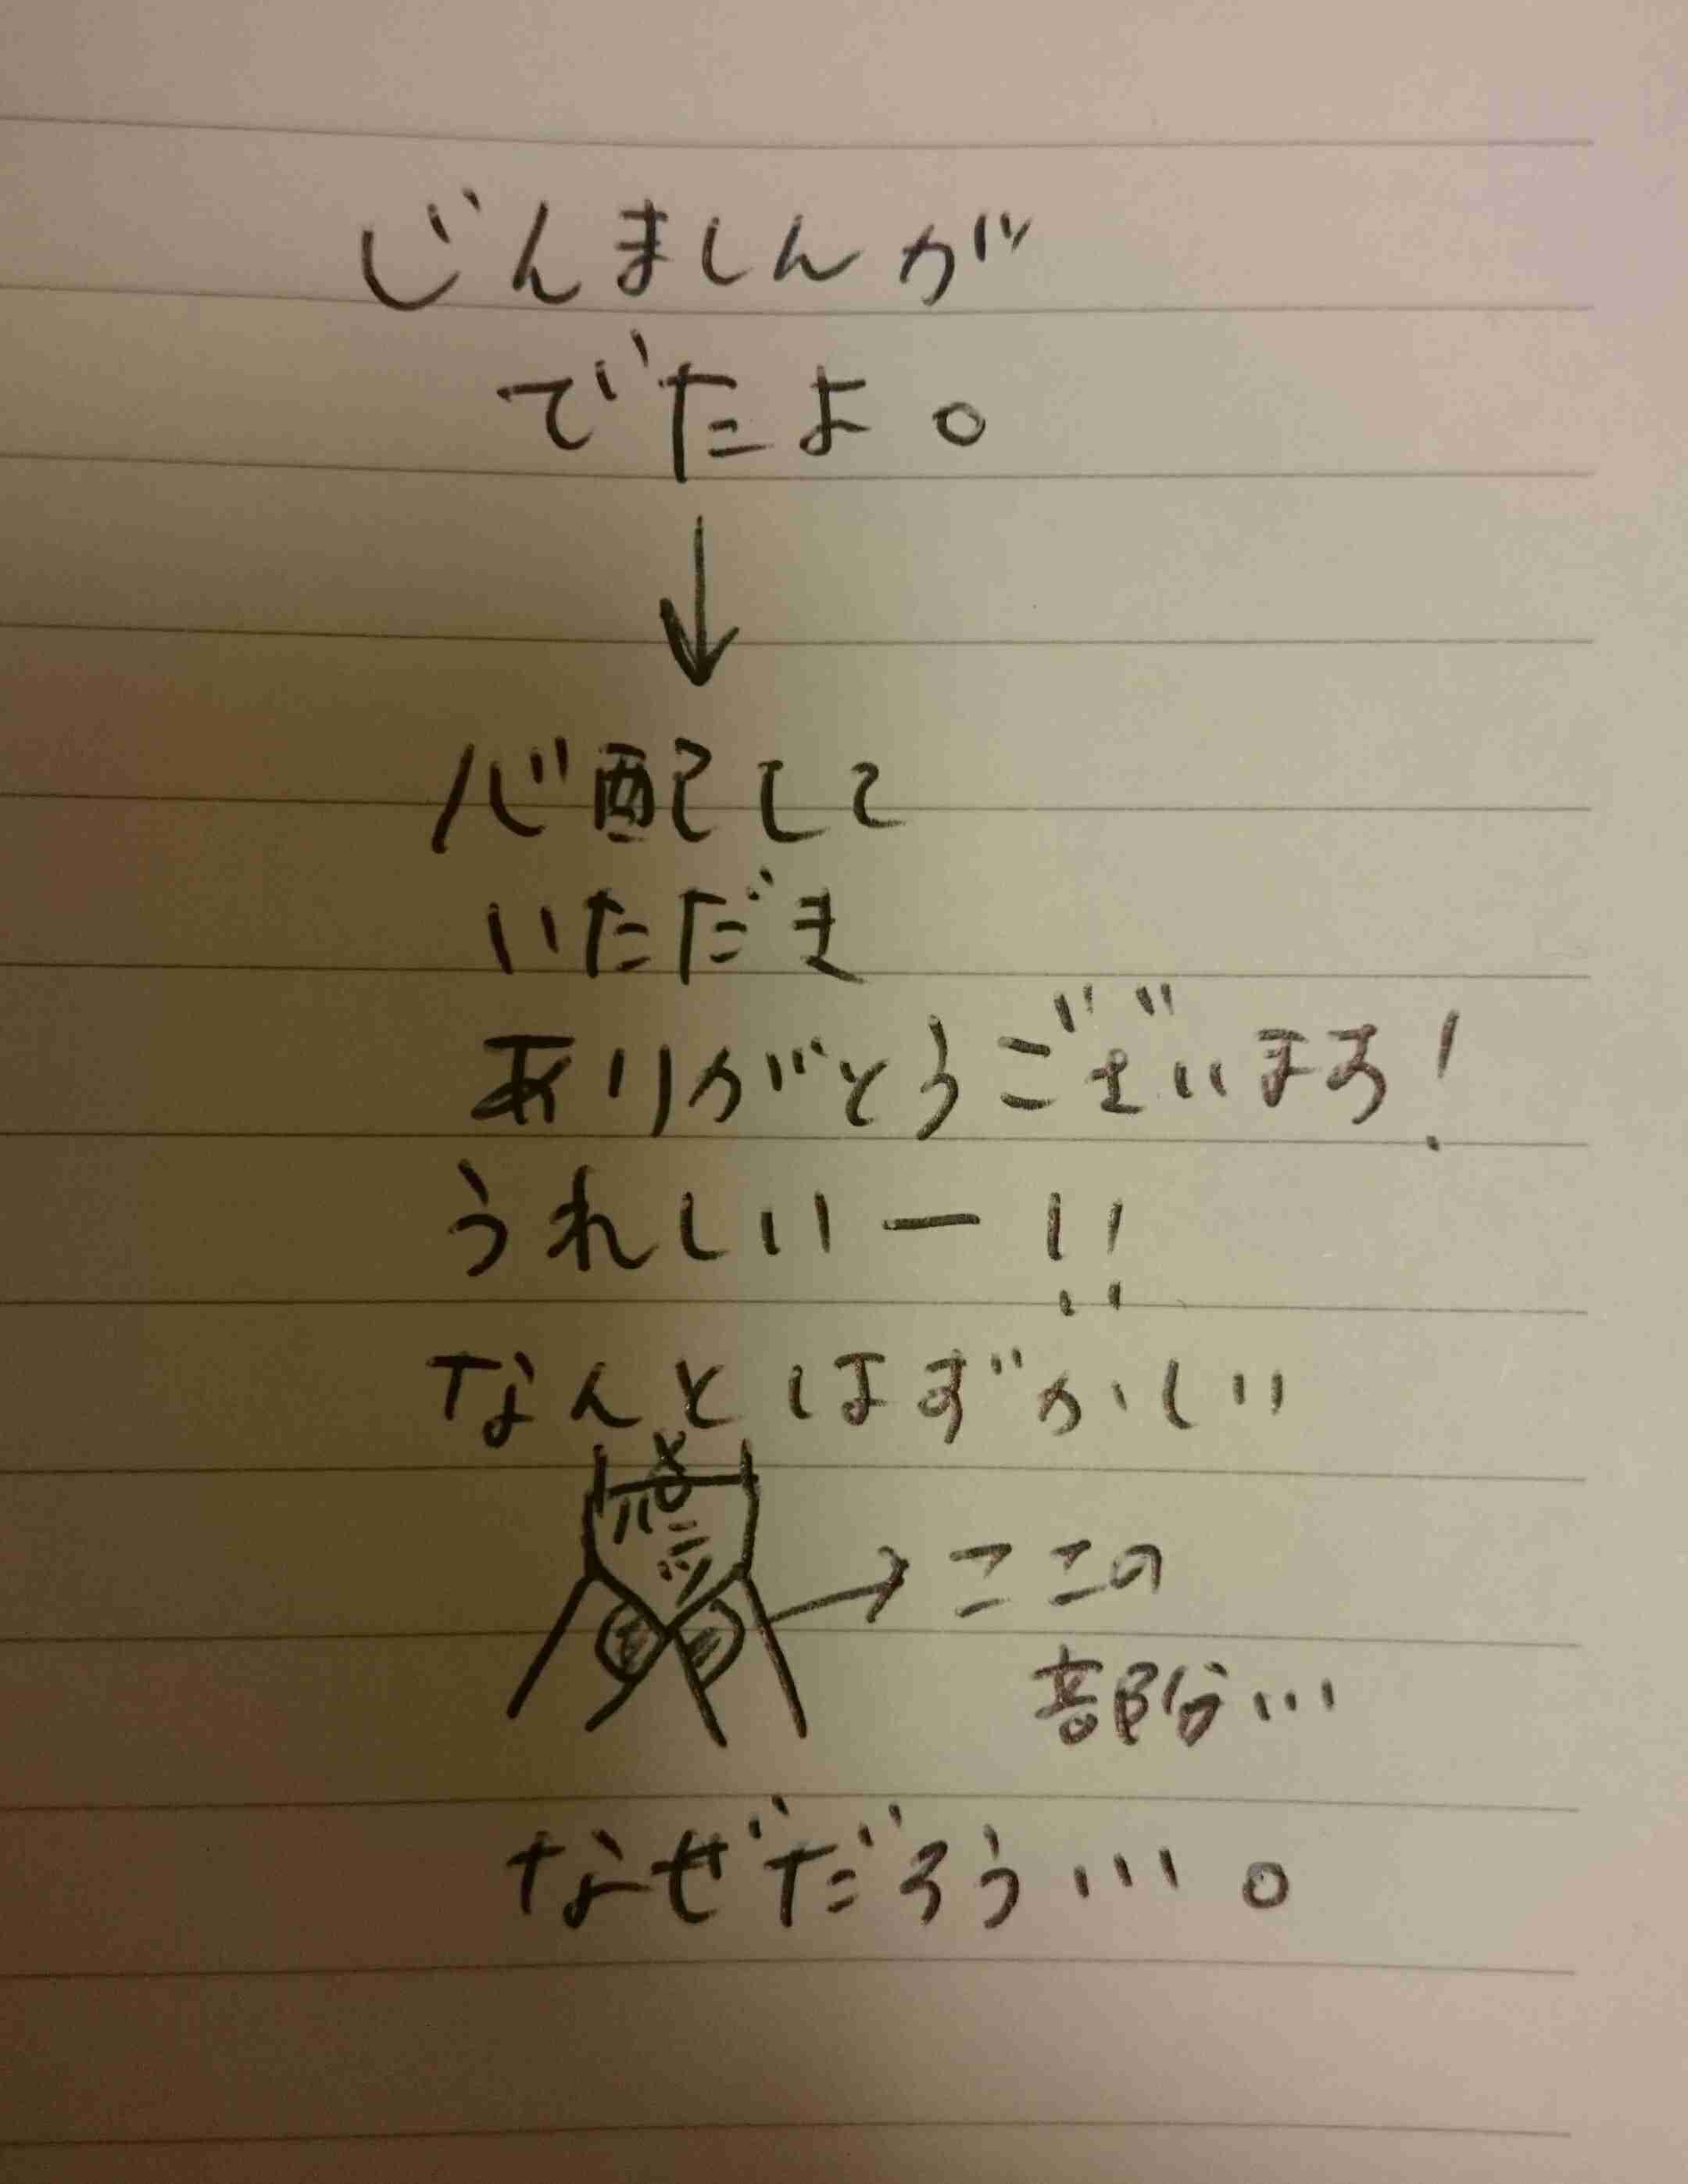 じんましんが
でたよ。
↓
心配して
いただき
ありがとうございます!
うれしいー!!
なんとはずかしい
パンツ
→ここの
部分…
なぜだろう…。